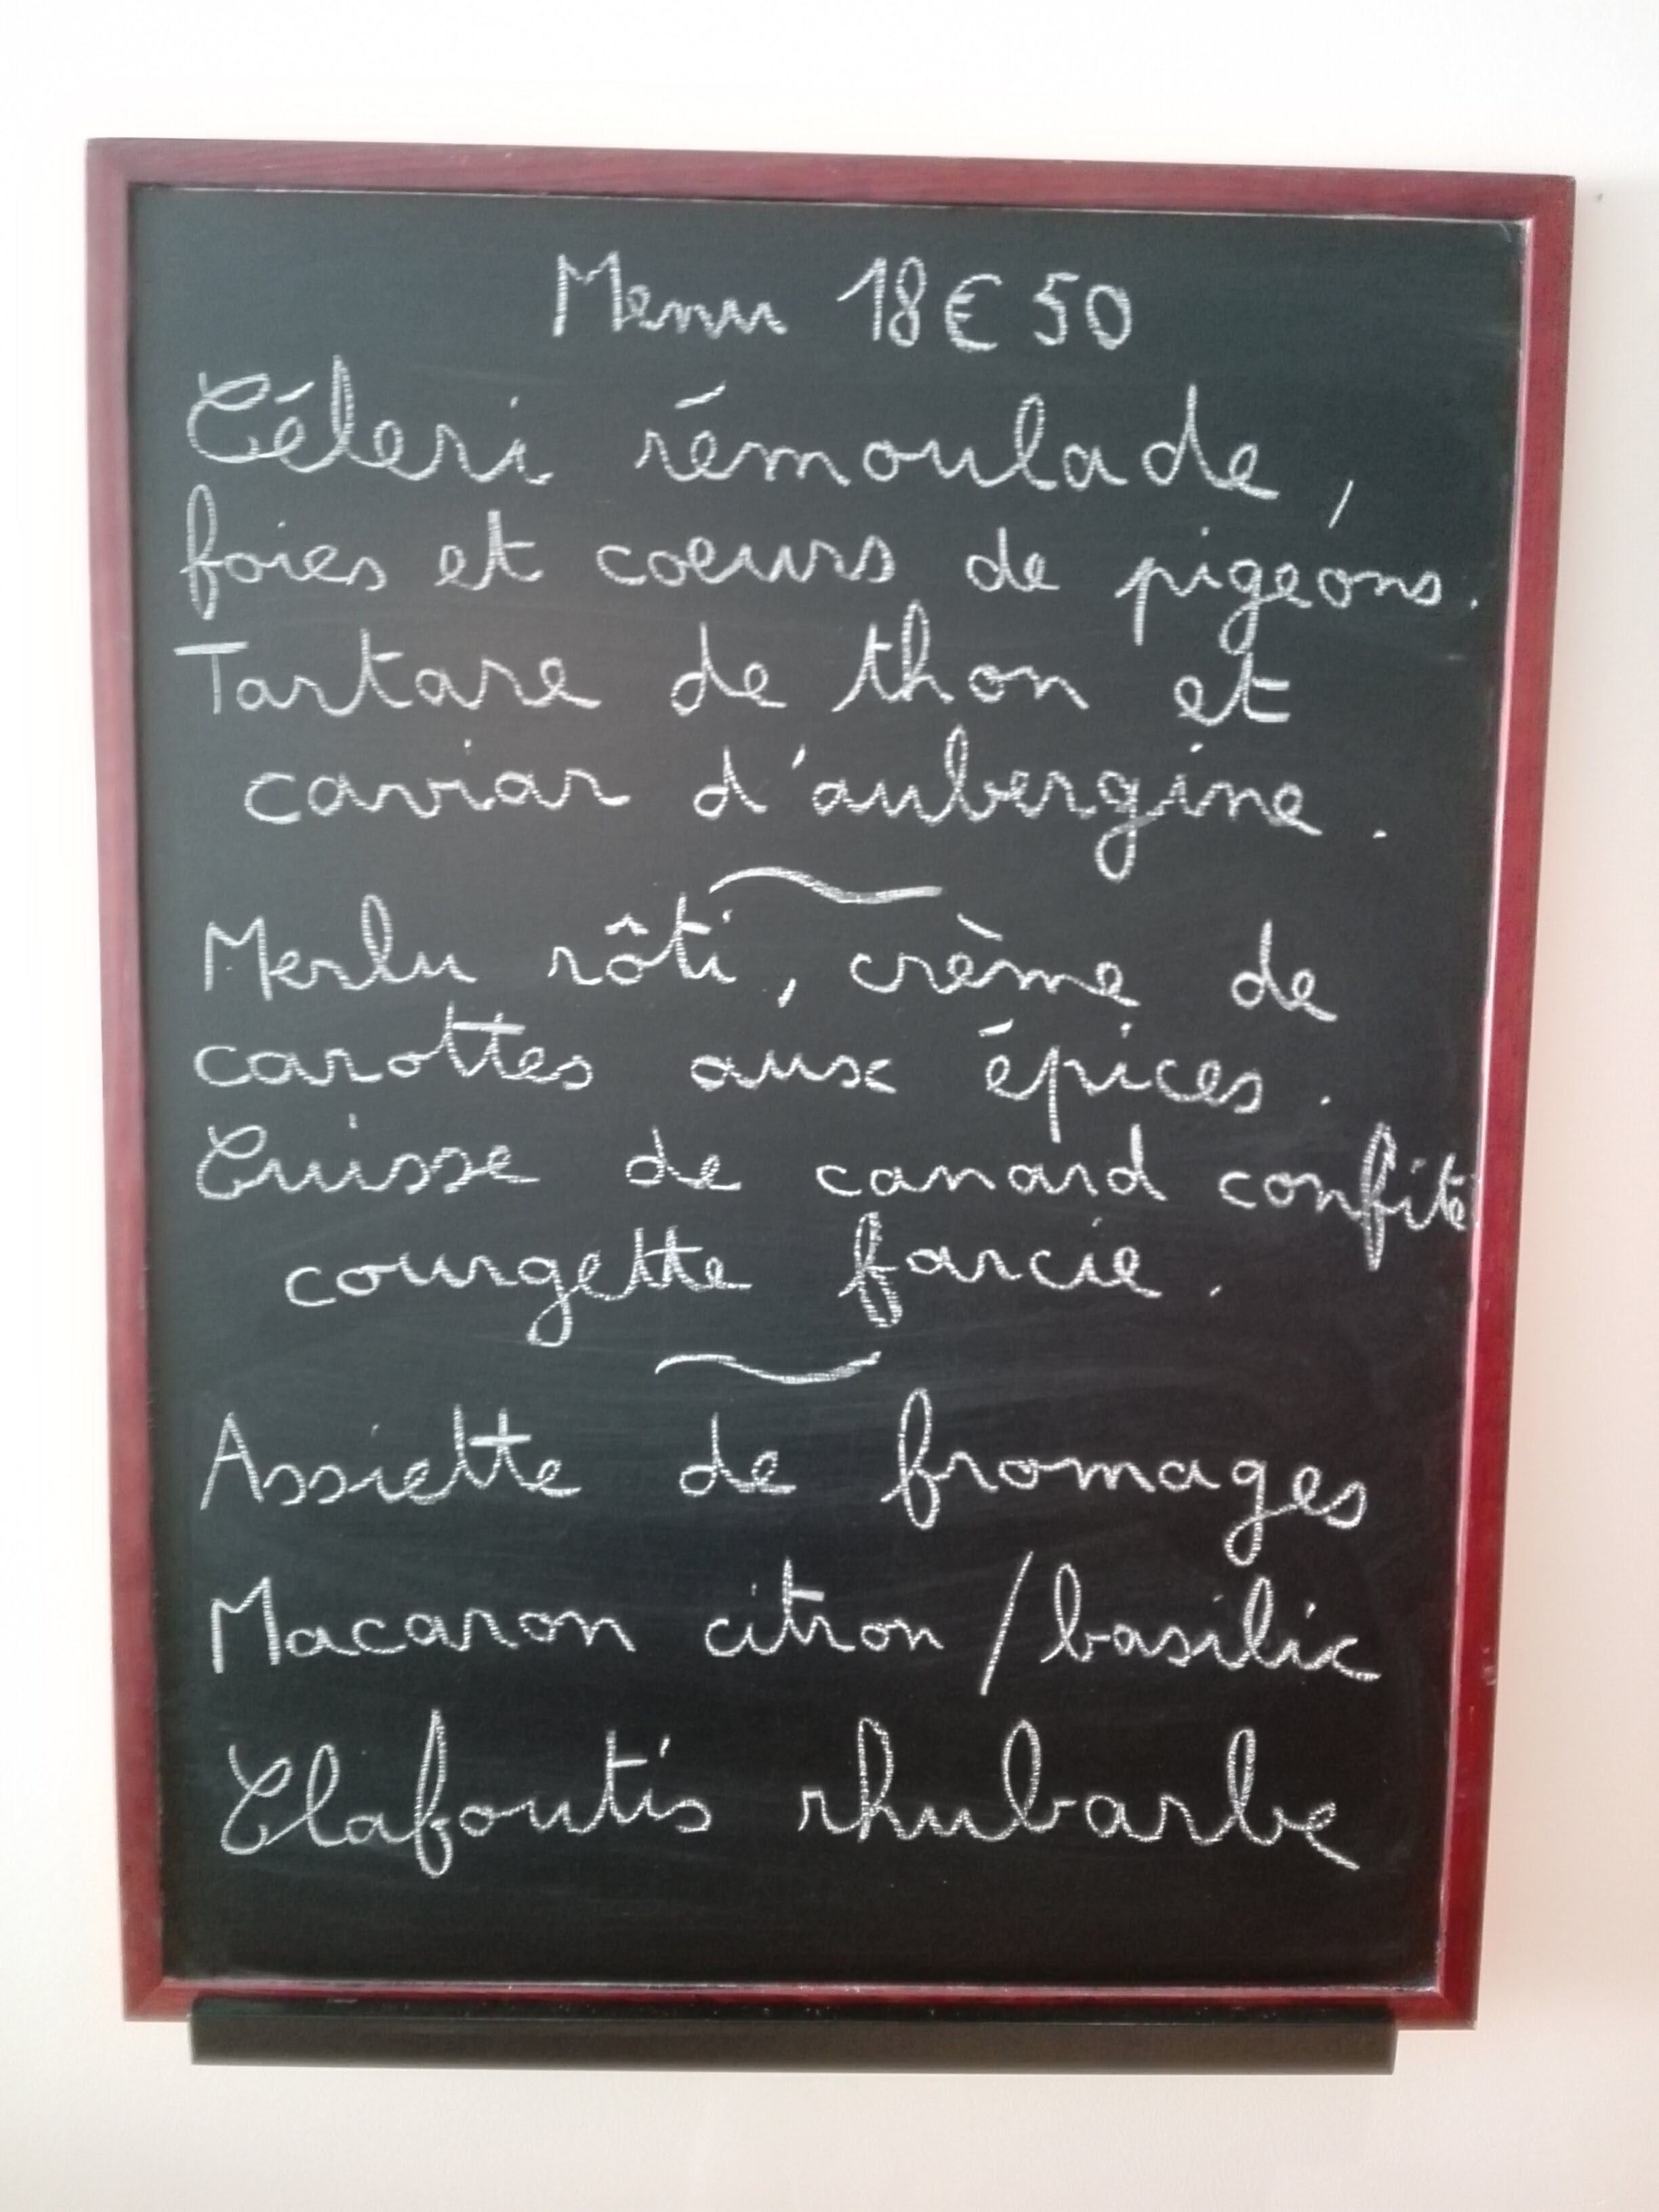 Menu 18€50
Céleri rémoulade,
foies et coeurs de pigeons.
Tartare de thon et
caviar d'aubergine.
Merlu rôti, crème de
carottes aux épices.
Cuisse de canard confite
courgette farcie.
Assiette de fromages
Macaron citron/basilic
Clafoutis rhubarbe